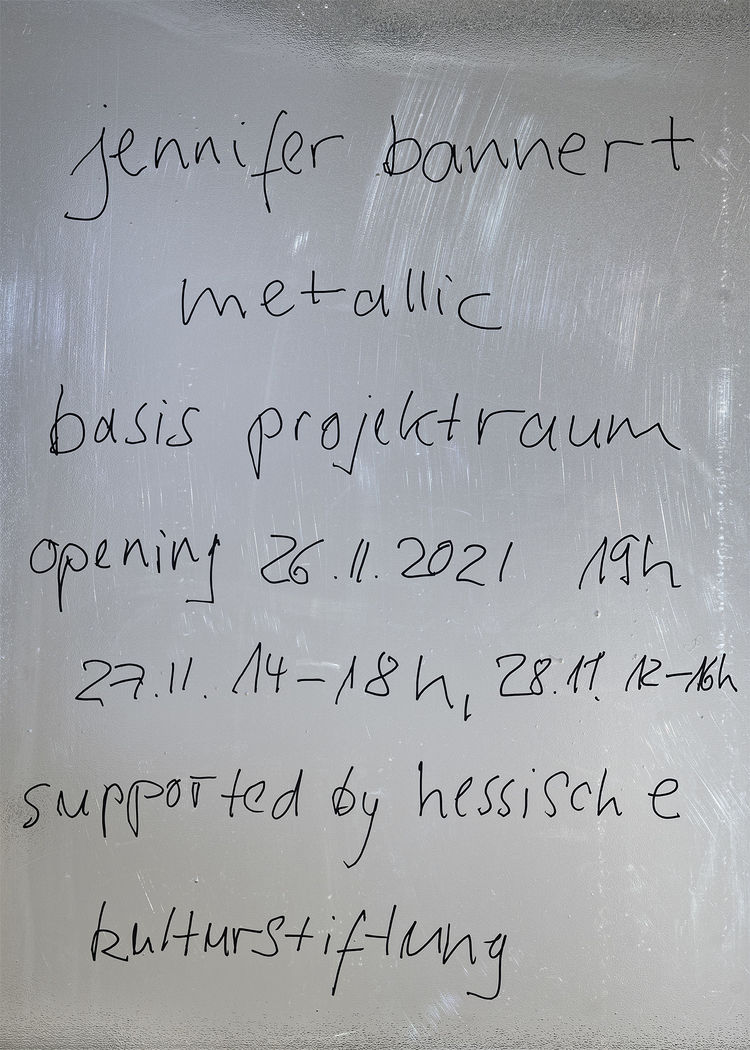 jennifer bannert
metallic
basis projektraum
opening 26.11.2021 19h
27.11. 14-18h, 28.11. 12-16h
supported by hessische
kulturstiftung